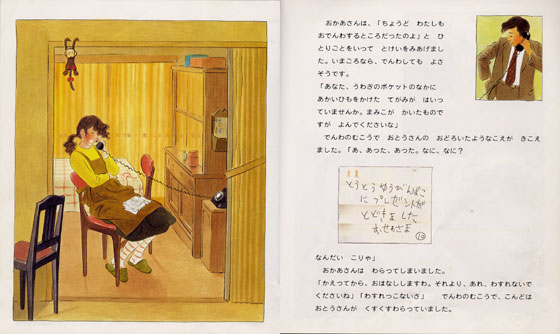 おかあさんは、「ちょうど わたしも
おでんわするところだったのよ」と ひ
とりごとをいって とけいをみあげまし
た。いまごろなら、でんわしても よさ
そうです。
「あなた、うわぎのポケットのなかに
あかいひもをかけた てがみが はいっ
ていませんか。まみこが かいたもので
すが よんでくださいな」
でんわのむこうで おとうさんの おどろいたようなこえが きこえ
ました。「あ、あった、あった。なに、なに？
とうとうゆうびんばこ
にプレゼントが
とどきました
10
なんだい こりゃ」
おかあさんは わらってしまいました。
「かえってから、おはなししますわ。それより、あれ、わすれないで
くださいね」「わすれっこないさ」 でんわのむこうで、こんどは
おとうさんが くすくすわらっていました。